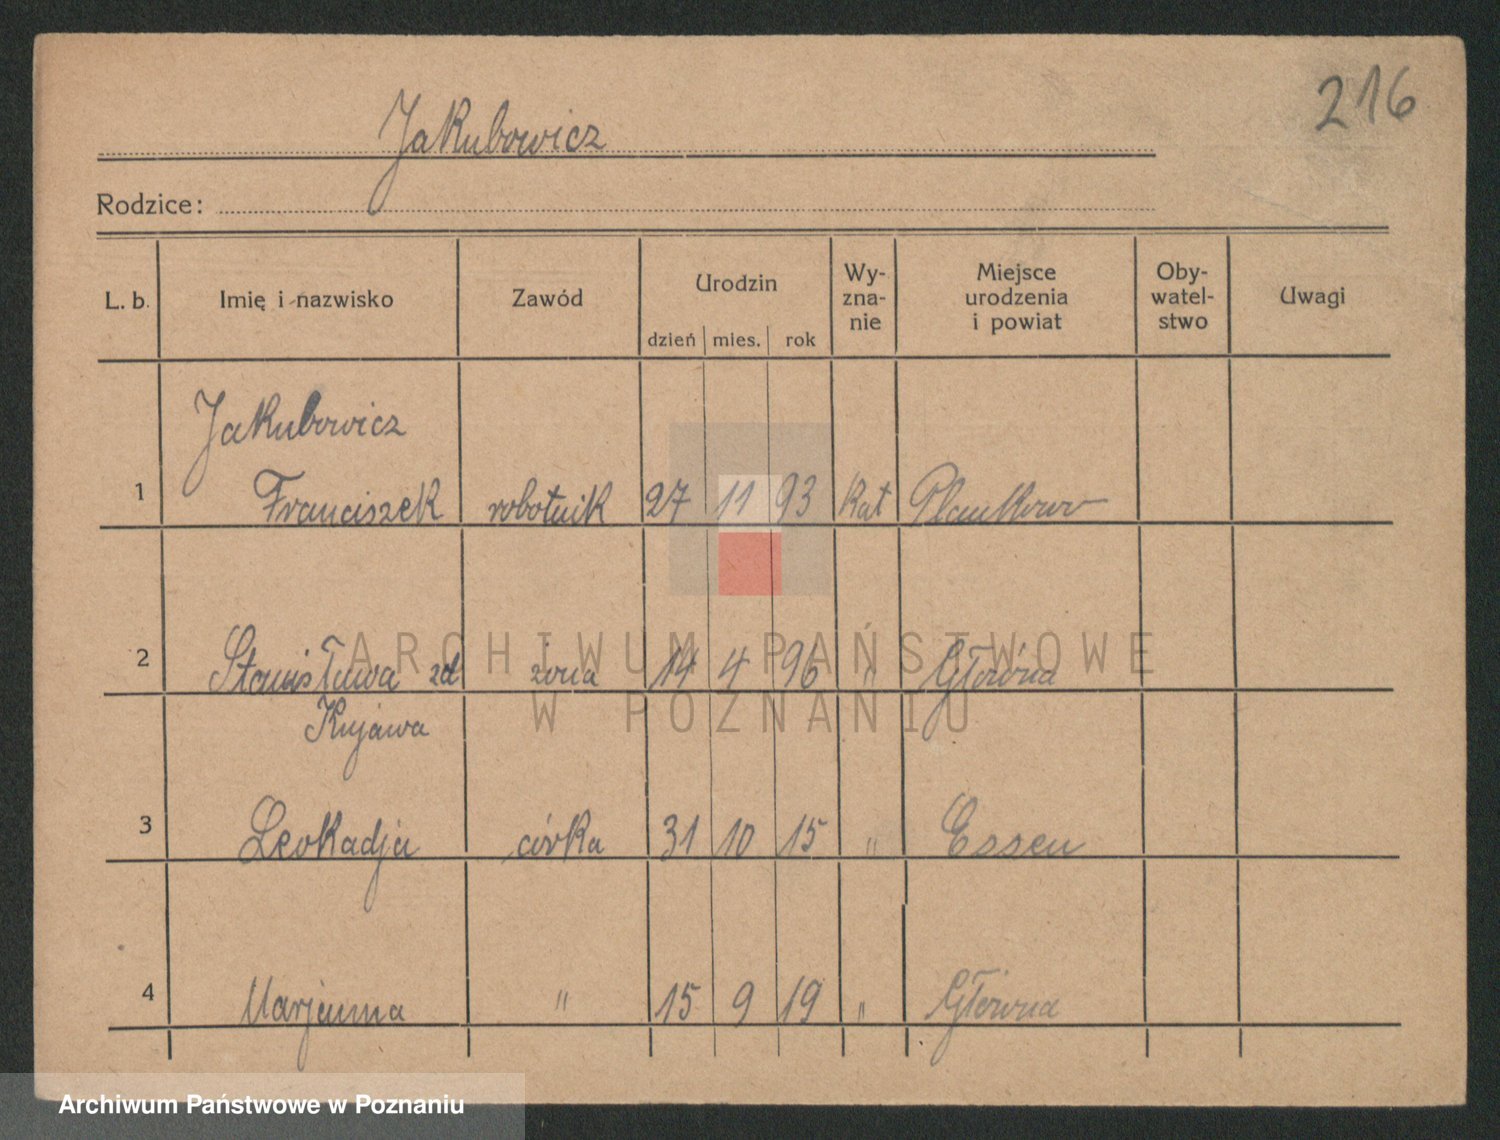 216
Jakubowicz
Rodzice:
L. b. Imię i nazwisko Zawód Urodzin dzień mies. rok Wy-zna-nie Miejsce urodzenia i powiat Oby-watel-stwo Uwagi
Jakubowicz
1 Franciszek robotnik 27 11 93 Kat
2 Stanisława zd żona 14 4 96 " Główna
Kujawa
3 Leokadja córka 31 10 15 " Essen
4 Marjanna " 15 9 19 " Główna
ARCHIWUM PAŃSTWOWE
W POZNANIU
Archiwum Państwowe w Poznaniu